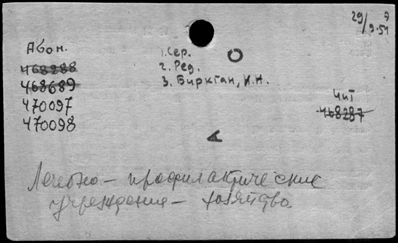 29/9.51 э
Абон.
468288
468689
470097
470098
1. Сер.
2. Ред.
3. Бирктан, И.Н.
Чит
468287
Лечебно - профилактические
учреждения - хозяйство